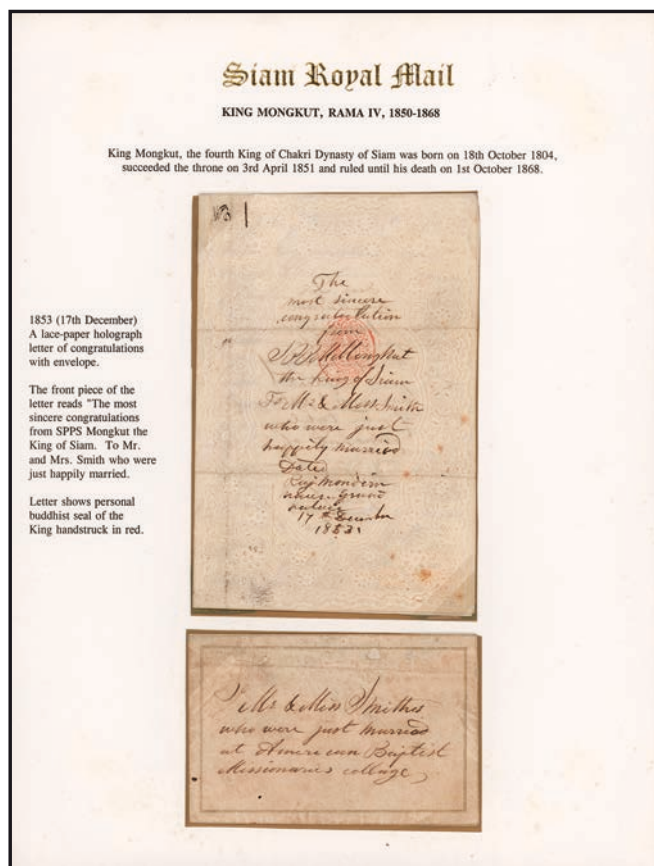 Siam Royal Mail
KING MONGKUT, RAMA IV, 1850-1868
King Mongkut, the fourth King of Chakri Dynasty of Siam was born on 18th October 1804,
succeeded the throne on 3rd April 1851 and ruled until his death on 1st October 1868.
1853 (17th December)
A lace-paper holograph
letter of congratulations
with envelope.
The front piece of the
letter reads "The most
sincere congratulations
from SPPS Mongkut the
King of Siam. To Mr.
and Mrs. Smith who were
just happily married.
Letter shows personal
buddhist seal of the
King handstruck in red.
The
most sincere
congratulation
from
the King of Siam
To Mr & Miss Smith
who were just
happily married
Dated
17th December
1853
To Mr & Miss Smithes
who were just married
at American Baptist
Missionaries collage